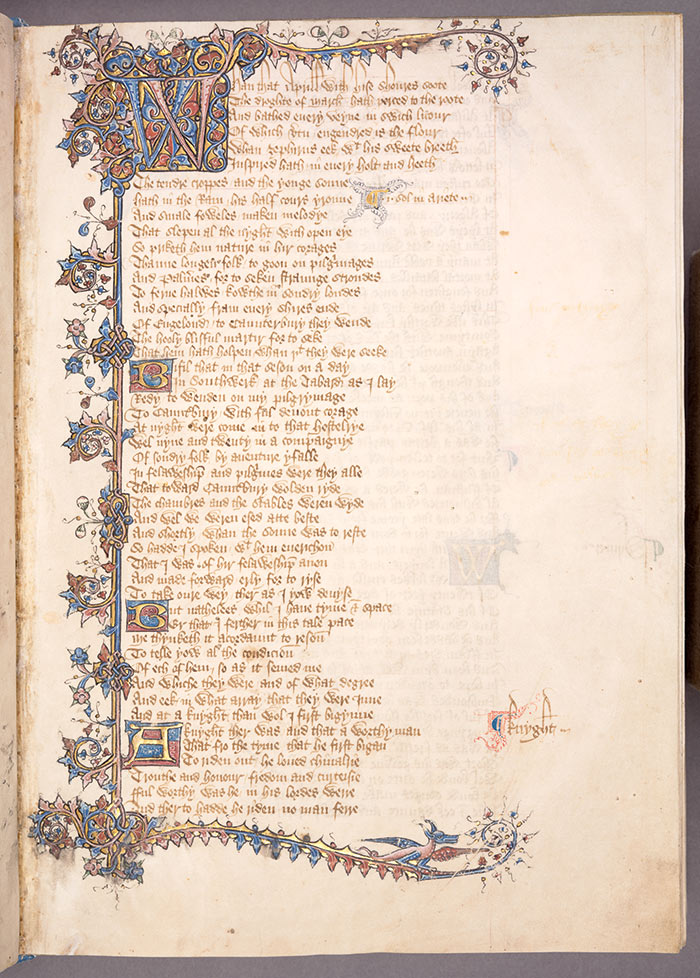 Whan that Aprill with hise shoures soote
The droghte of march hath perced to the roote
And bathed every veyne in swich licour
Of which vtu engendred is the flour
Whan zephirus eek wt his sweete breeth
Inspired hath in every holt and heeth
The tendre croppes and the yonge sonne
hath in the Ram his half cours yronne
.i. sol in ariete
And smale foweles maken melodye
That slepen al the nyght with open eye
So priketh hem nature in hir corages
Thanne longen folk to goon on pilgrimages
And Palmeres for to seken straunge strondes
To ferne halwes kowthe in sondry londes
And specially fram every shires ende
Of Engelond to Caunterbury they wende
The hooly blisful martir for to seke
That hem hath holpen whan þt they were seeke
Bifil that in that seson on a day
In Southwerk at the Tabard as I lay
Redy to wenden on my pilgrymage
To Caunterbury with ful deuout corage
At nyght were come in to that hostelrye
Wel nyne and twenty in a compaignye
Of sondry folk by auenture yfalle
In felaweshipe and pilgrimes were they alle
That toward Caunterbury wolden ryde
The chambres and the stables weren wyde
And wel we weren esed atte beste
And shortly whan the sonne was to reste
So hadde I spoken wt hem euerichon
That I was of hir felaweshipe anon
And made forward erly for to ryse
To take oure wey ther as I yow deuyse
But nathelees whil I haue tyme & space
Er that I ferther in this tale pace
Me thynketh it acordaunt to reson
To telle yow al the condicion
Of ech of hem so as it semed me
And whiche they were and of what degree
And eek in what array that they were Inne
And at a knyght than wol I first bigynne
A knyght ther was and that a worthy man
That fro the tyme that he first bigan
To riden out he loued chiualrie
Trouthe and honour fredom and curteisie
fful worthy was he in his lordes werre
And ther to hadde he riden no man ferre
Knyght